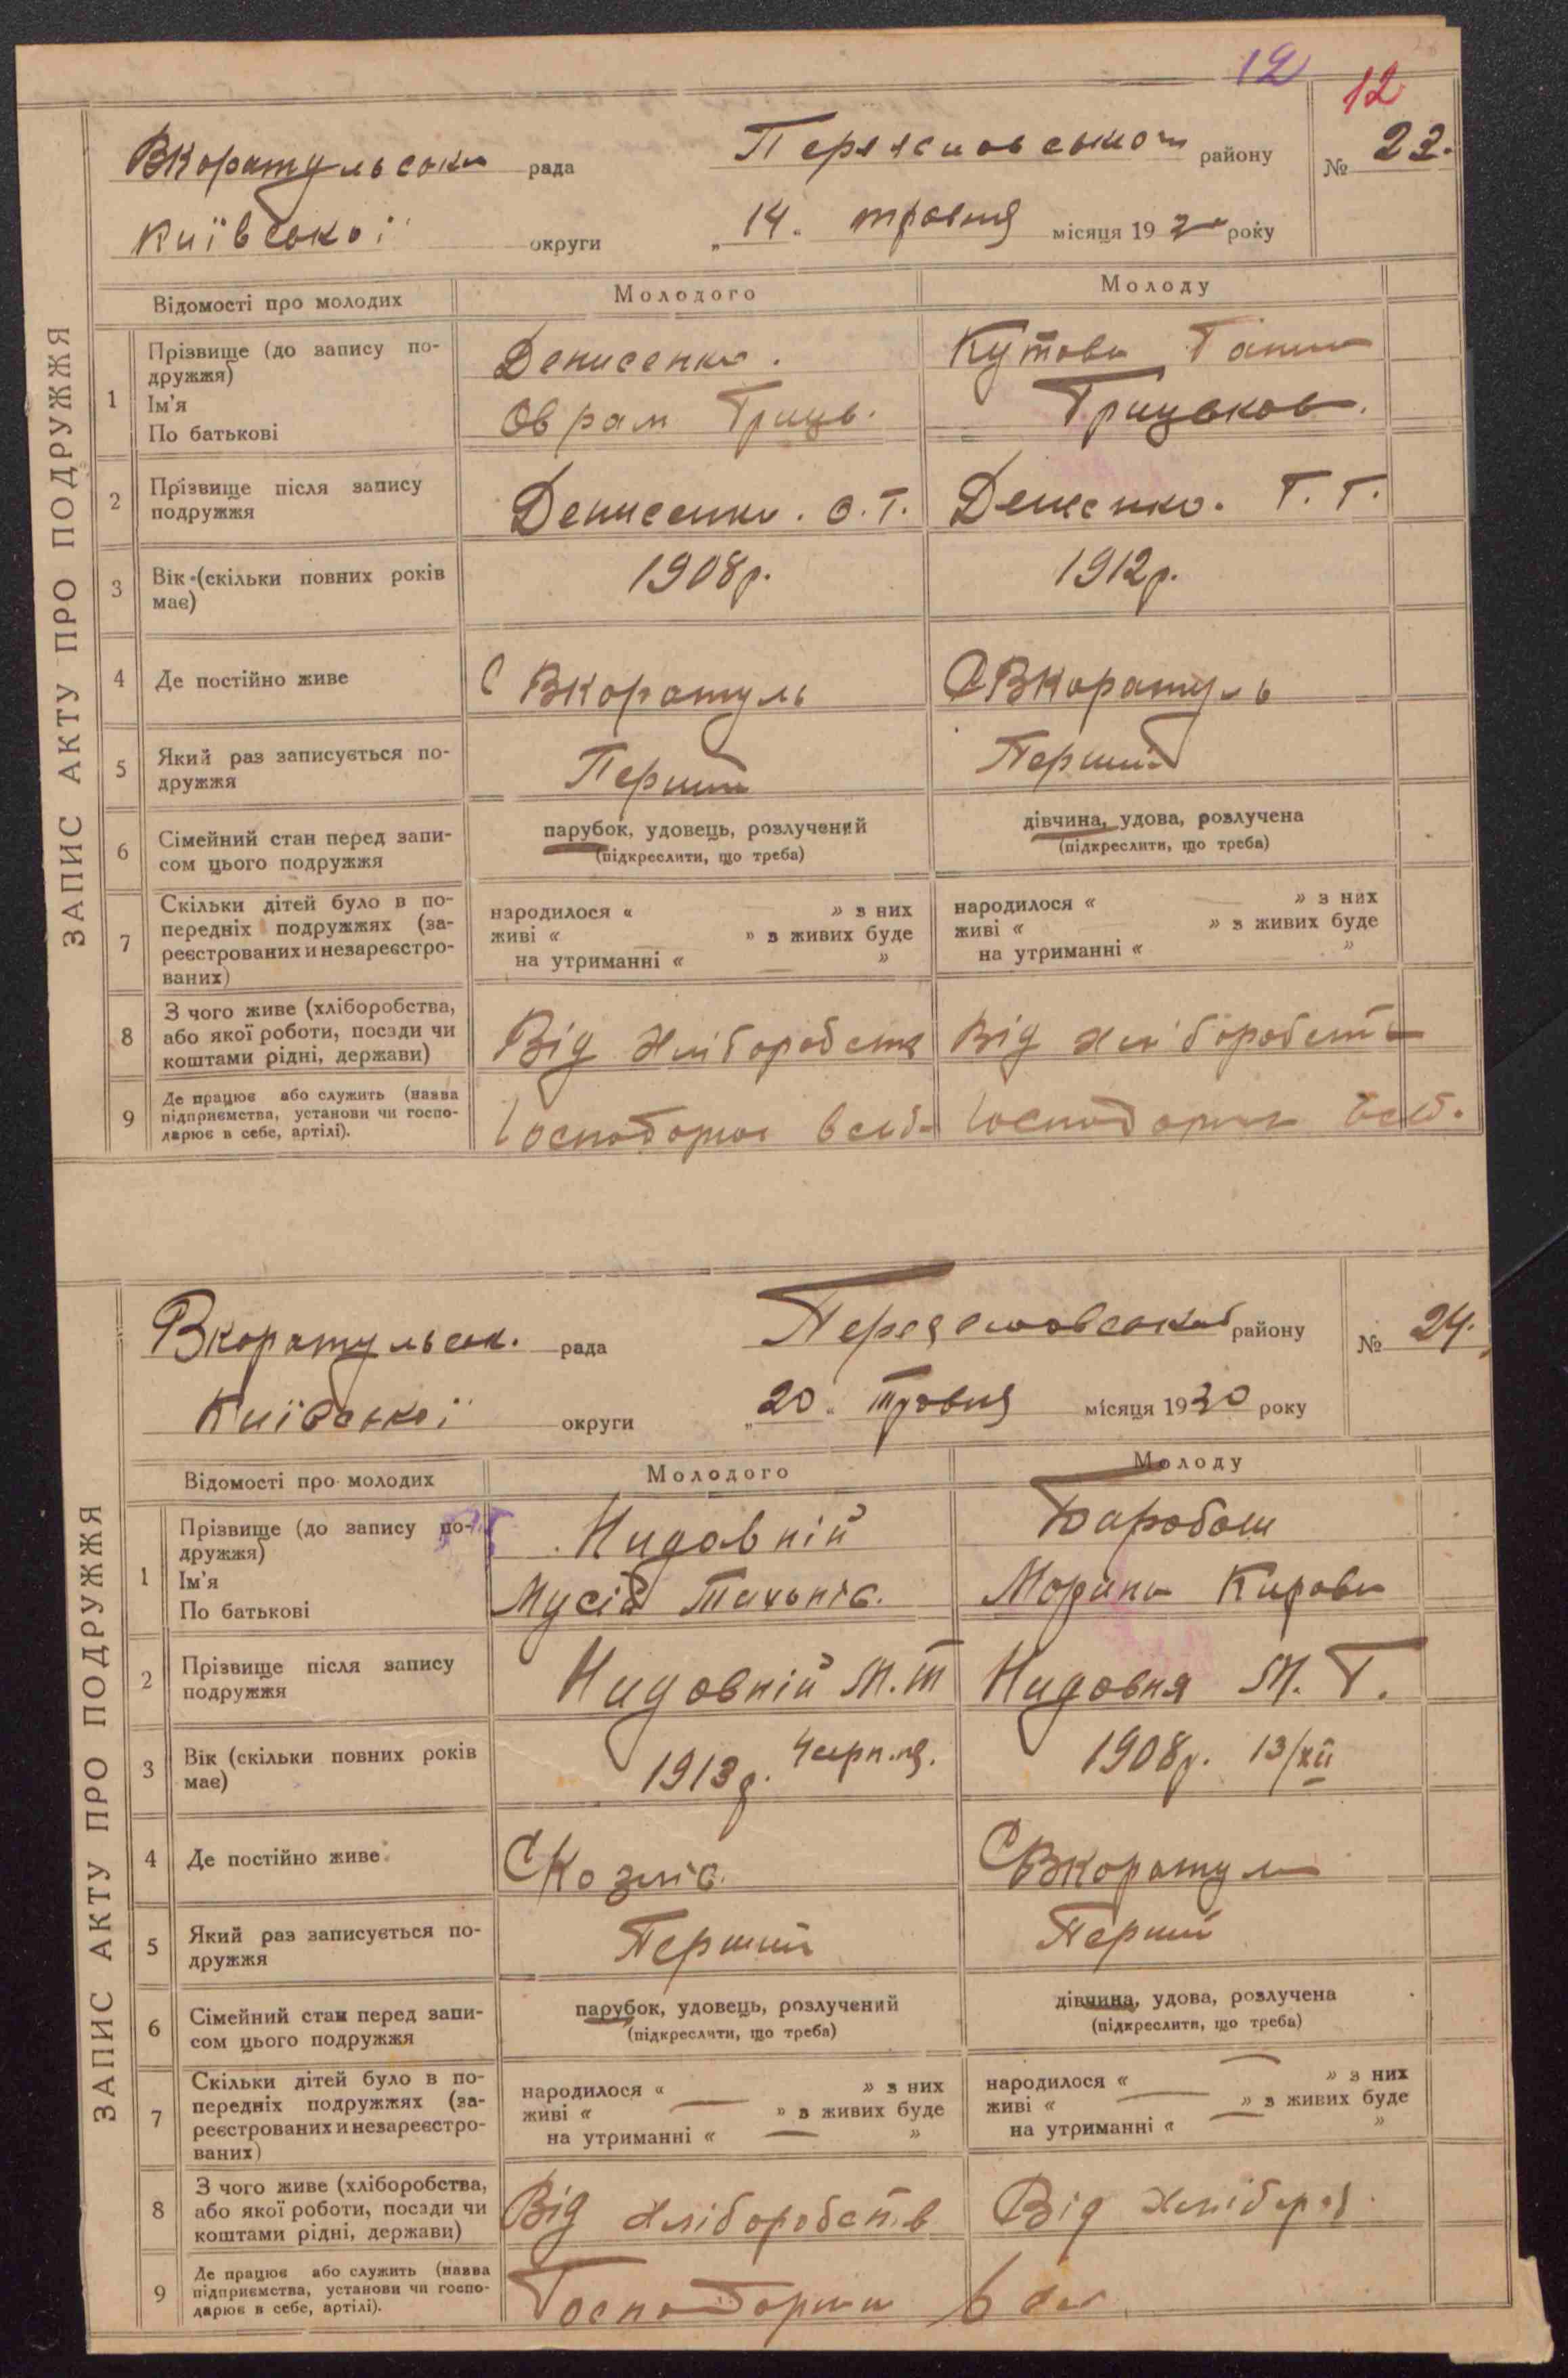 12
12
Вкоратульська рада Переясловського району № 23.
Київської округи „14" травня місяця 1930 року
ЗАПИС АКТУ ПРО ПОДРУЖЖЯ
Відомості про молодих Молодого Молоду
1 Прізвище (до запису подружжя) Денисенко. Кутова Ганна
Ім'я
По батькові Оврам Гриць. Грицьков.
2 Прізвище після запису подружжя Денисенко. О. Г. Денисенко. Г. Г.
3 Вік (скільки повних років має) 1908р. 1912р.
4 Де постійно живе С Вкоратуль С Вкоратуль
5 Який раз записується подружжя Перший Перший
6 Сімейний стан перед записом цього подружжя парубок, удовець, розлучений (підкреслити, що треба) дівчина, удова, розлучена (підкреслити, що треба)
7 Скільки дітей було в попередніх подружжях (зареєстрованих и незареєстрованих) народилося « » з них народилося « » з них
живі « » з живих буде живі « » з живих буде
на утриманні « — » на утриманні « »
8 З чого живе (хліборобства, або якої роботи, посади чи коштами рідні, держави) Від хліборобств Від хліборобств
9 Де працює або служить (назва підприємства, установи чи господарює в себе, артілі).
Вкоратульськ. рада Переясловської району № 24.
Київської округи „20" травня місяця 1930 року
ЗАПИС АКТУ ПРО ПОДРУЖЖЯ
Відомості про молодих Молодого Молоду
1 Прізвище (до запису подружжя) Нидовній Барабаш
Ім'я
По батькові Мусій Марина Кирова
2 Прізвище після запису подружжя Нидовній М. Т Нидовня М.
3 Вік (скільки повних років має) 1913р. 1908р. 13/XII
4 Де постійно живе С Козлів. С Вкоратул
5 Який раз записується подружжя Перший Перший
6 Сімейний стан перед записом цього подружжя парубок, удовець, розлучений (підкреслити, що треба) дівчина, удова, розлучена (підкреслити, що треба)
7 Скільки дітей було в попередніх подружжях (зареєстрованих и незареєстрованих) народилося « » з них народилося « — » з них
живі « — » з живих буде живі « — » з живих буде
на утриманні « — » на утриманні « — »
8 З чого живе (хліборобства, або якої роботи, посади чи коштами рідні, держави) Від хліборобств Від хлібороб.
9 Де працює або служить (назва підприємства, установи чи господарює в себе, артілі).